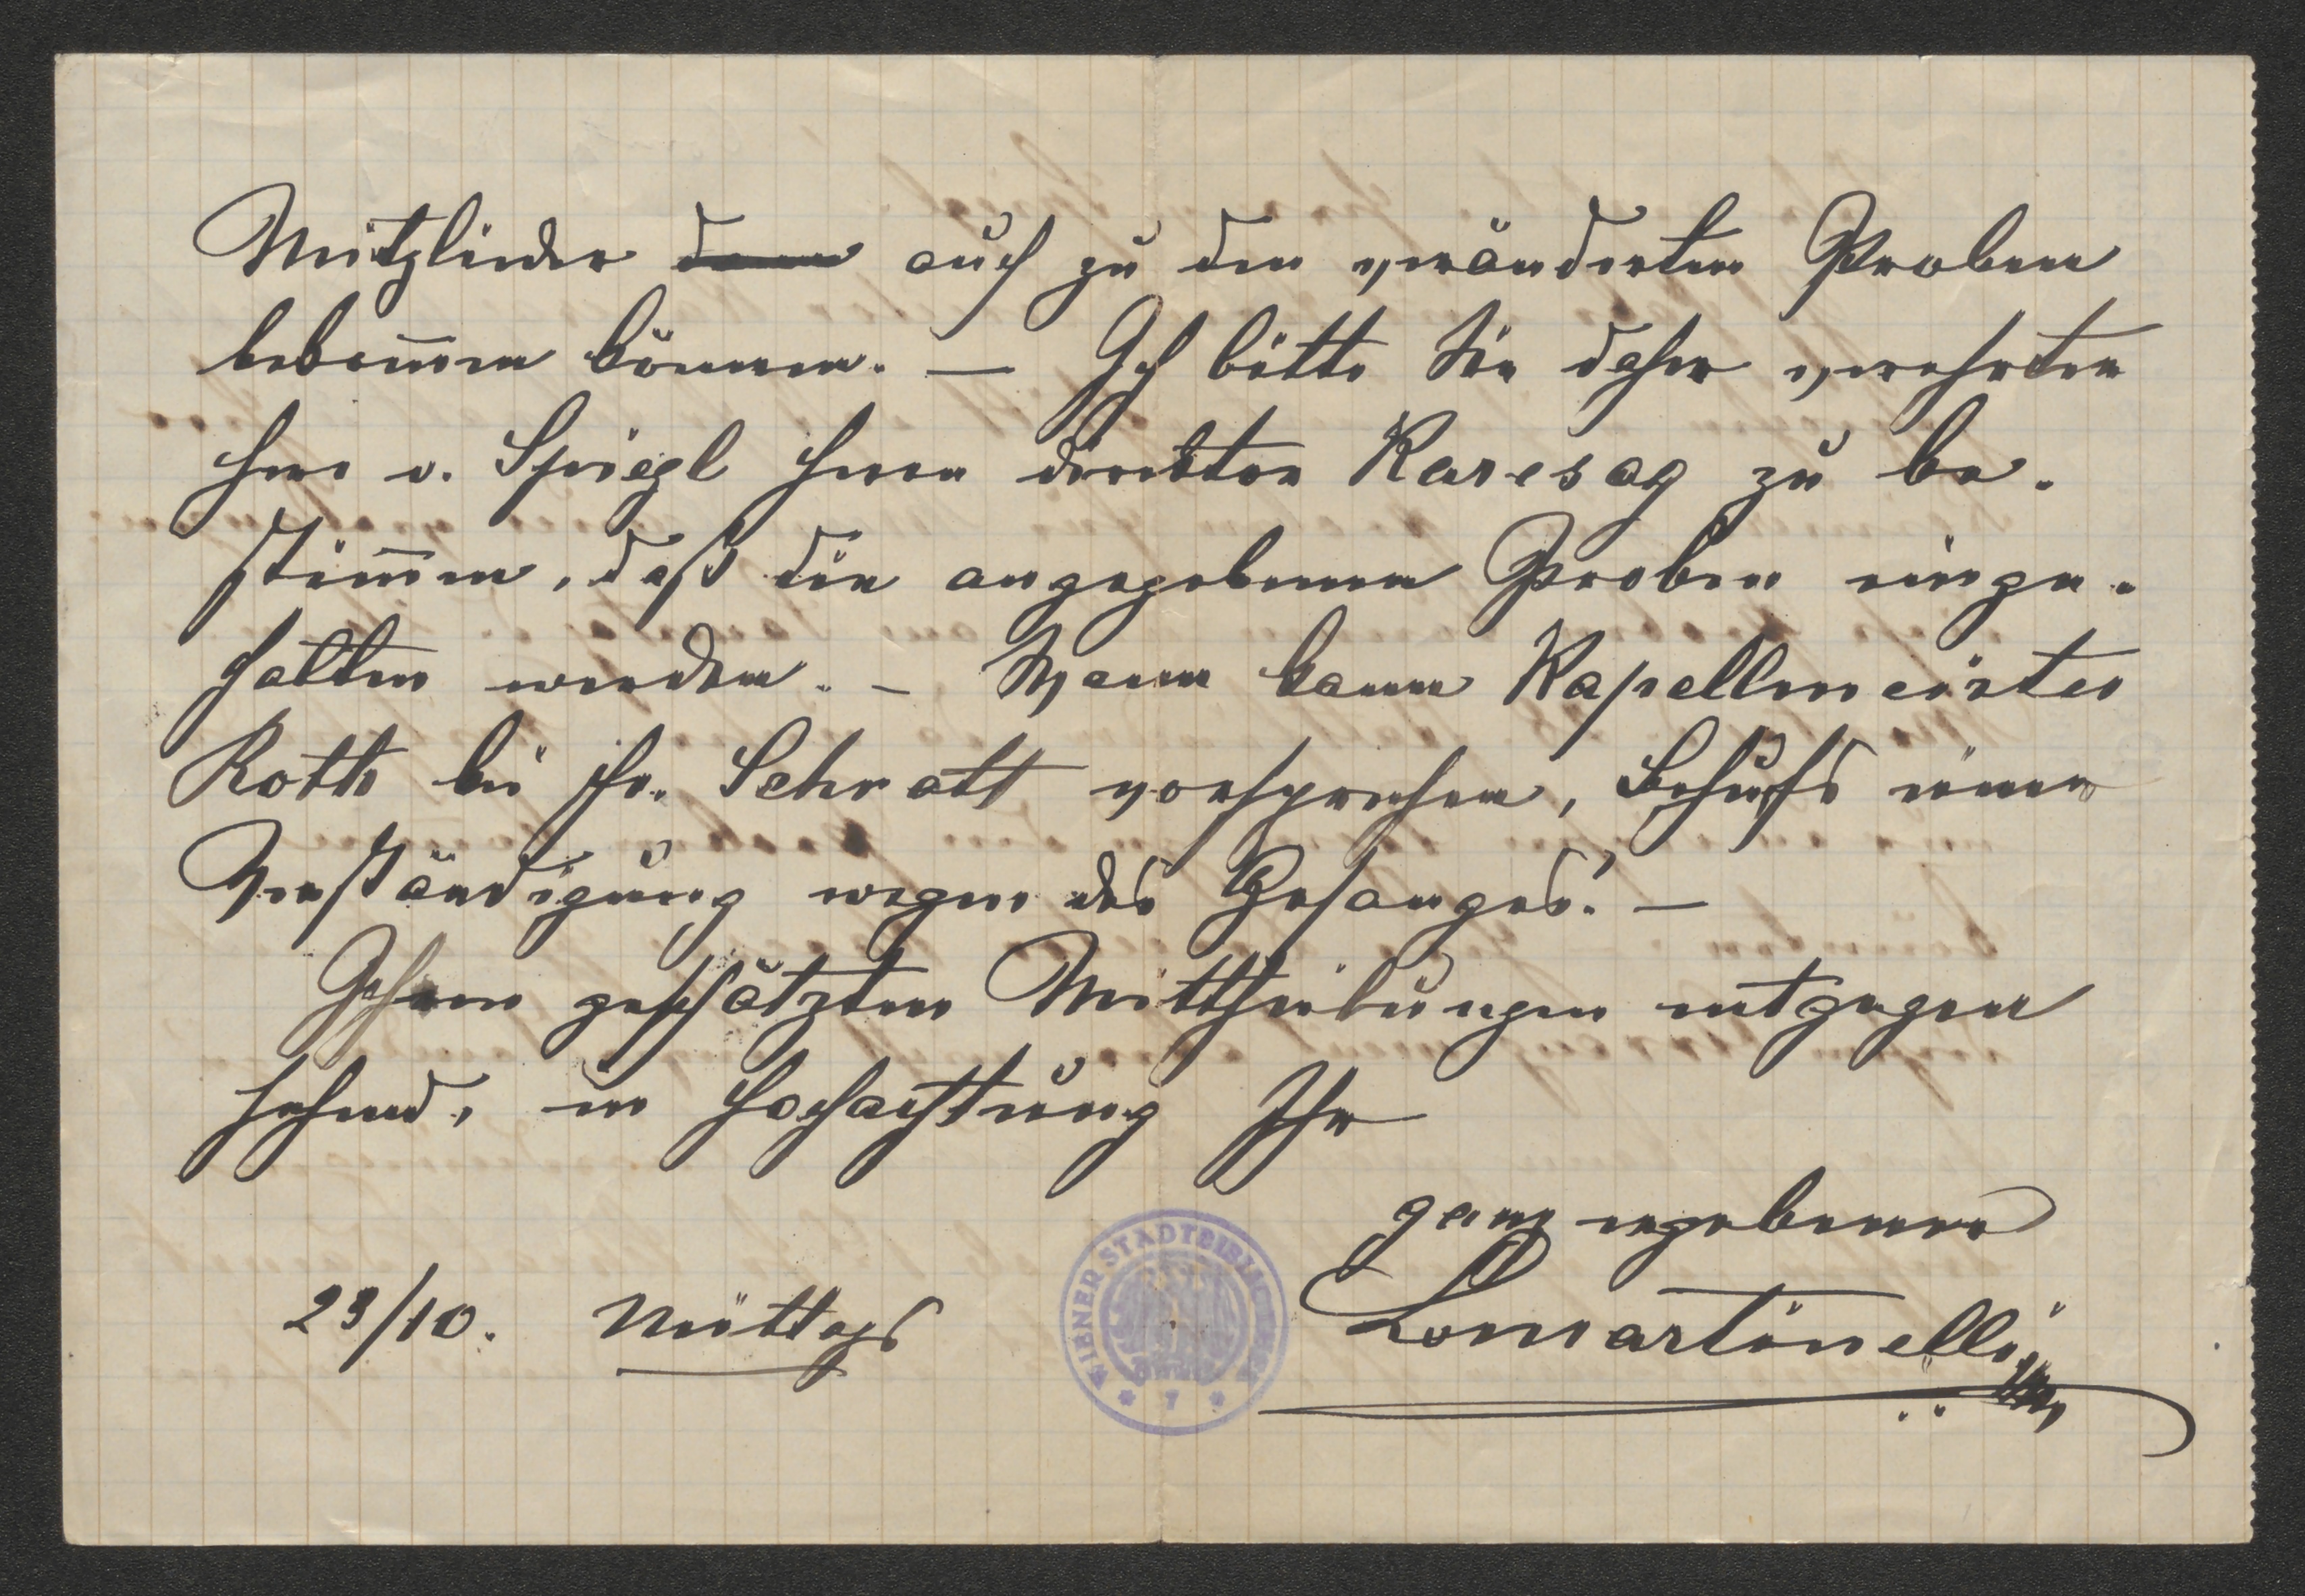 Mitglieder dann auch zu den veränderten Proben
bekom̅en können. — Ich bitte Sie daher verehrter
Herr v. Spiegl Herrn Direktor Karesag zu be-
stim̅en, daß die angegebenen Proben einge-
halten werden. – Wann kann Kapellmeister
Roth bei Fr. Schratt vorsprechen, Behufs einer
Verständigung wegen des Gesanges. —
Ihren geschätzten Mittheilungen entgegen
sehend, in Hochachtung Ihr
ganz ergebener
29/10. Mittags
WIENER STADTBIBLIOTHEK
* 7 *